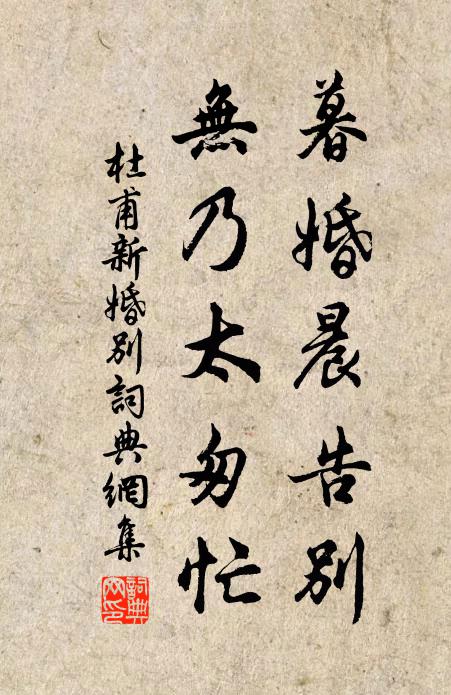 暮婚晨告別
無乃太匆忙
杜甫新婚別詞典網集
詞典
网印